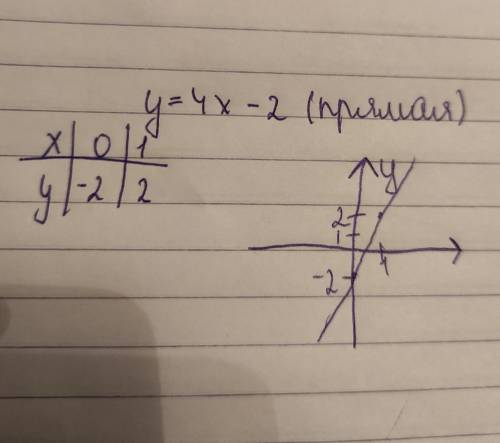 y = 4x - 2 (прямая)
x | 0 | 1
y | -2 | 2
y
2
1
1
-2